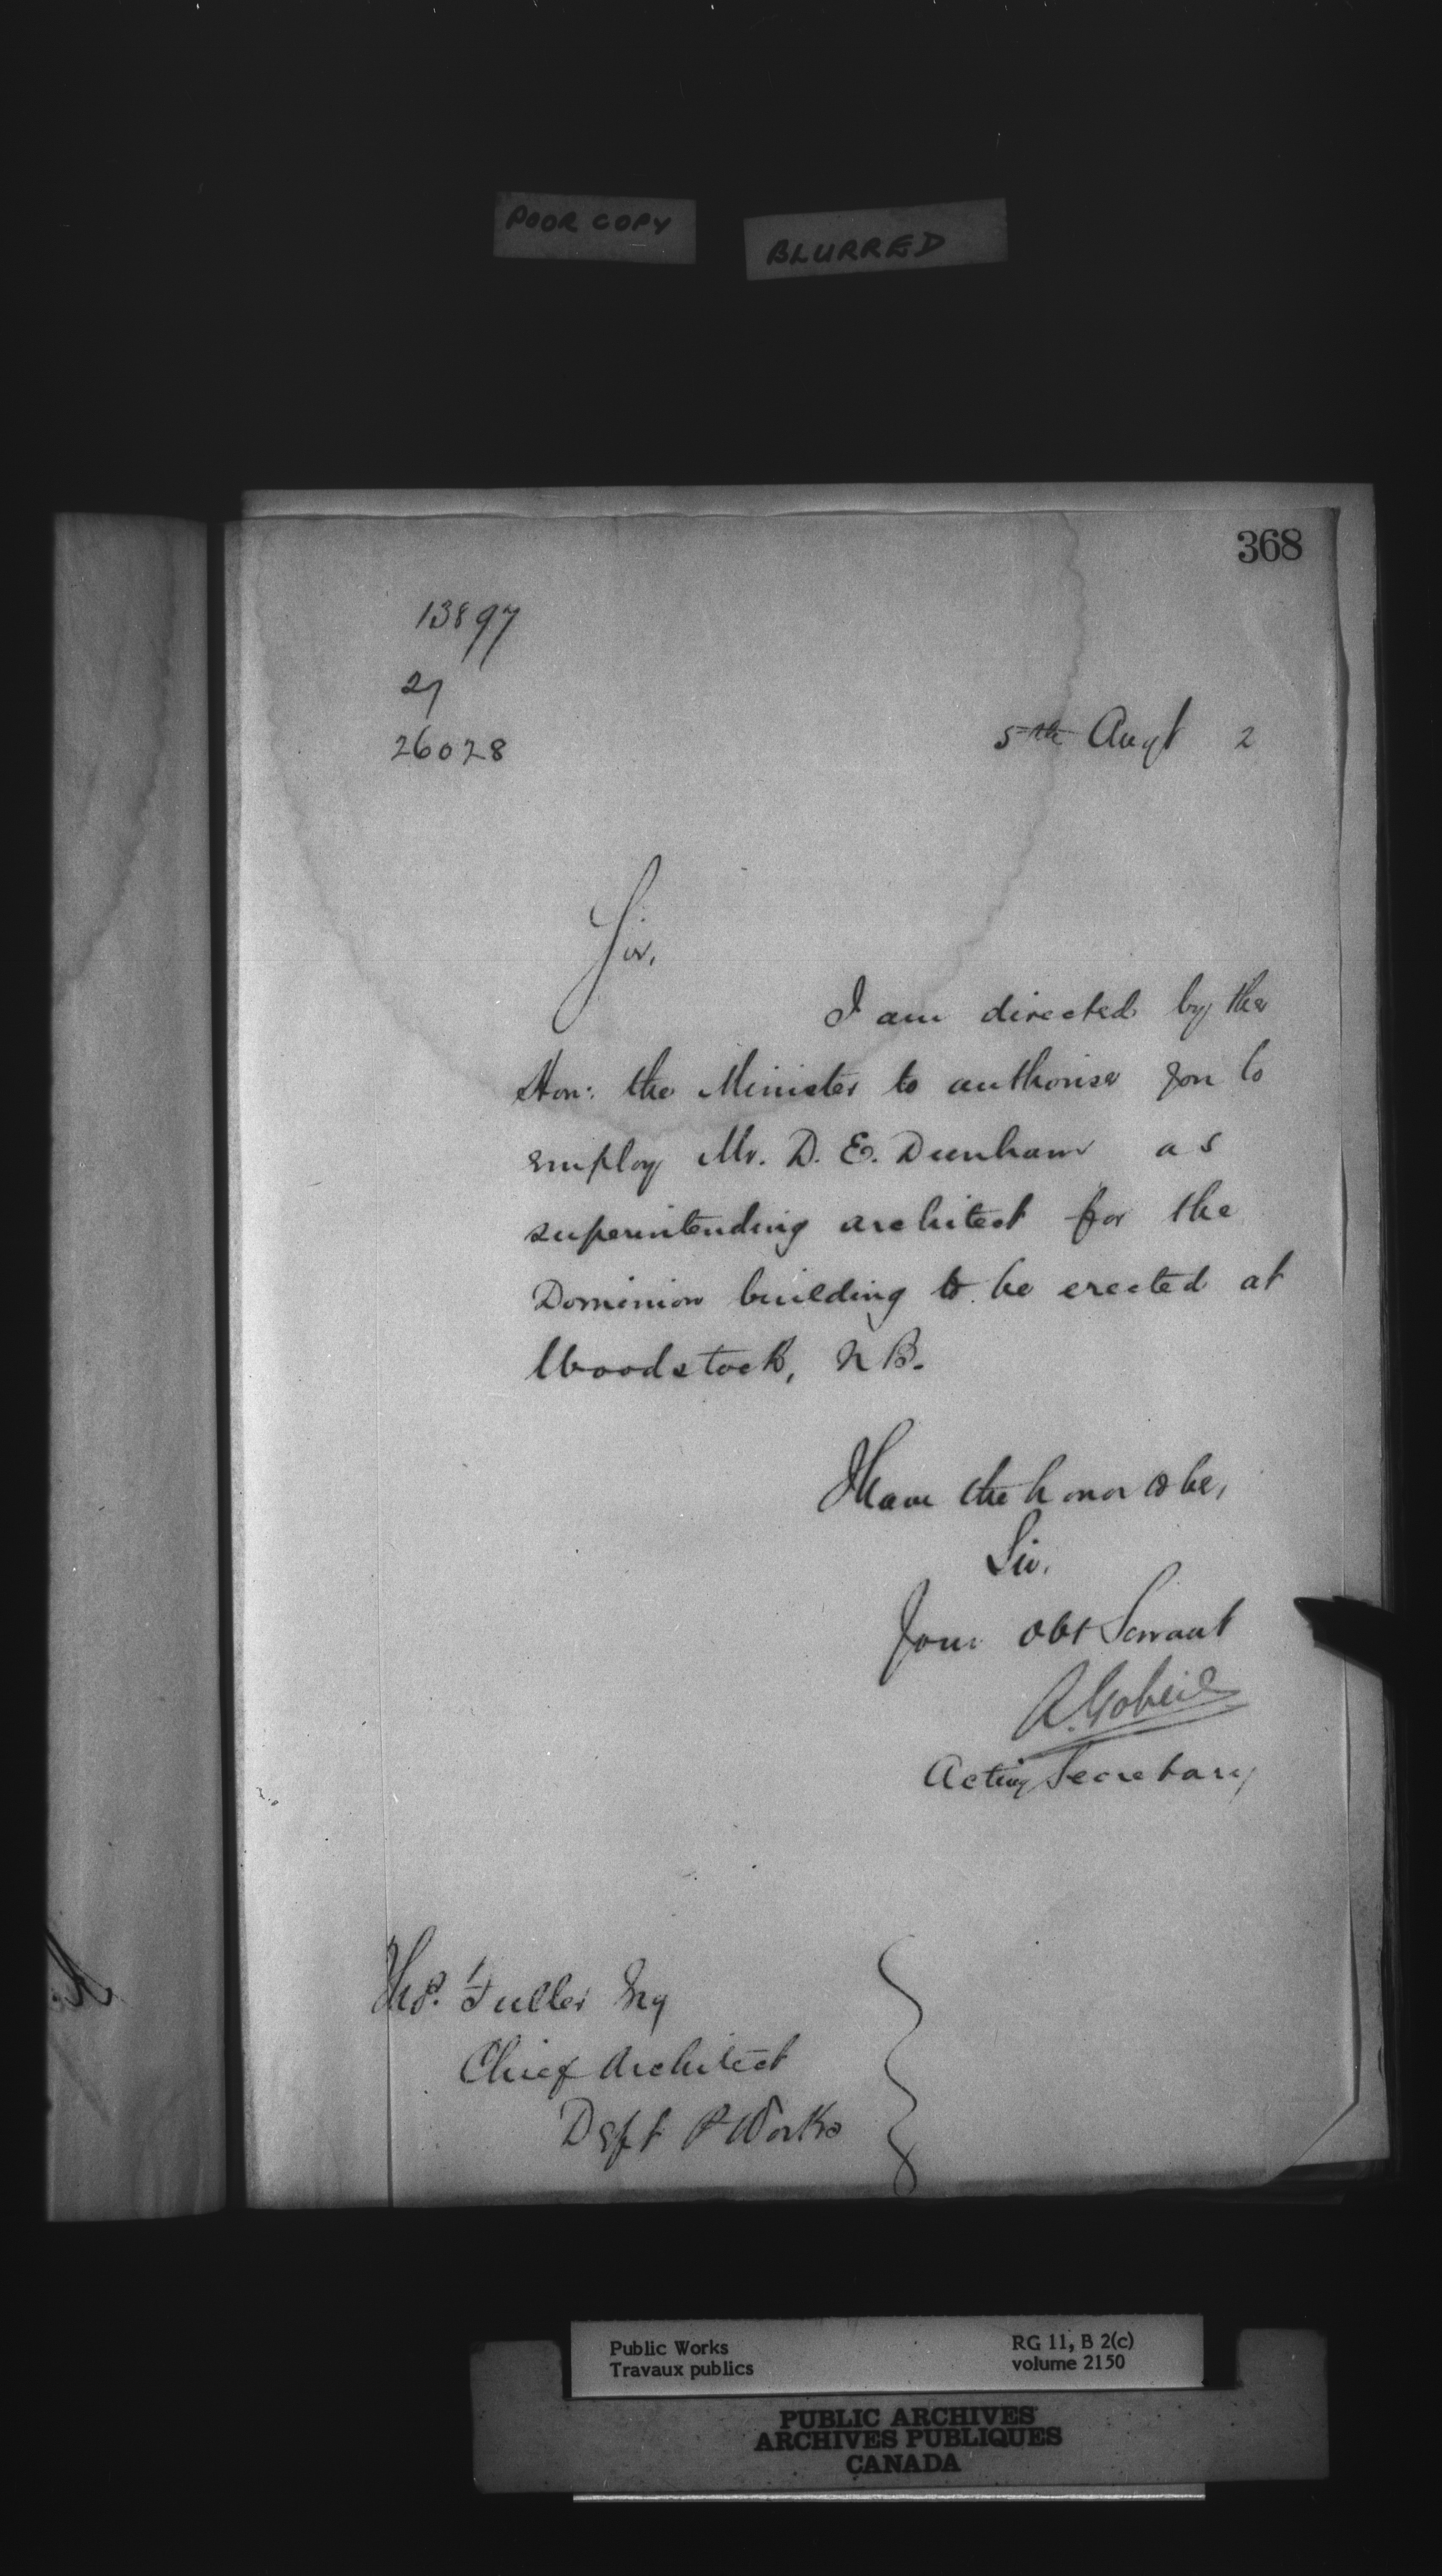 POOR COPY
BLURRED
368
13897
27
26028
5th Augt 2
Sir,
I am directed by the
Hon: the Minister to authorise you to
employ Mr. D. E. Dunham as
superintending architect for the
Dominion building to be erected at
Woodstock, N B.
I have the honor to be,
Sir.
Your Obt Servant
A. Gobeil
Acting Secretary
Thos. Fuller Esq
Chief Architect
Dept P Works
Public Works
Travaux publics
RG 11, B 2(c)
volume 2150
PUBLIC ARCHIVES
ARCHIVES PUBLIQUES
CANADA